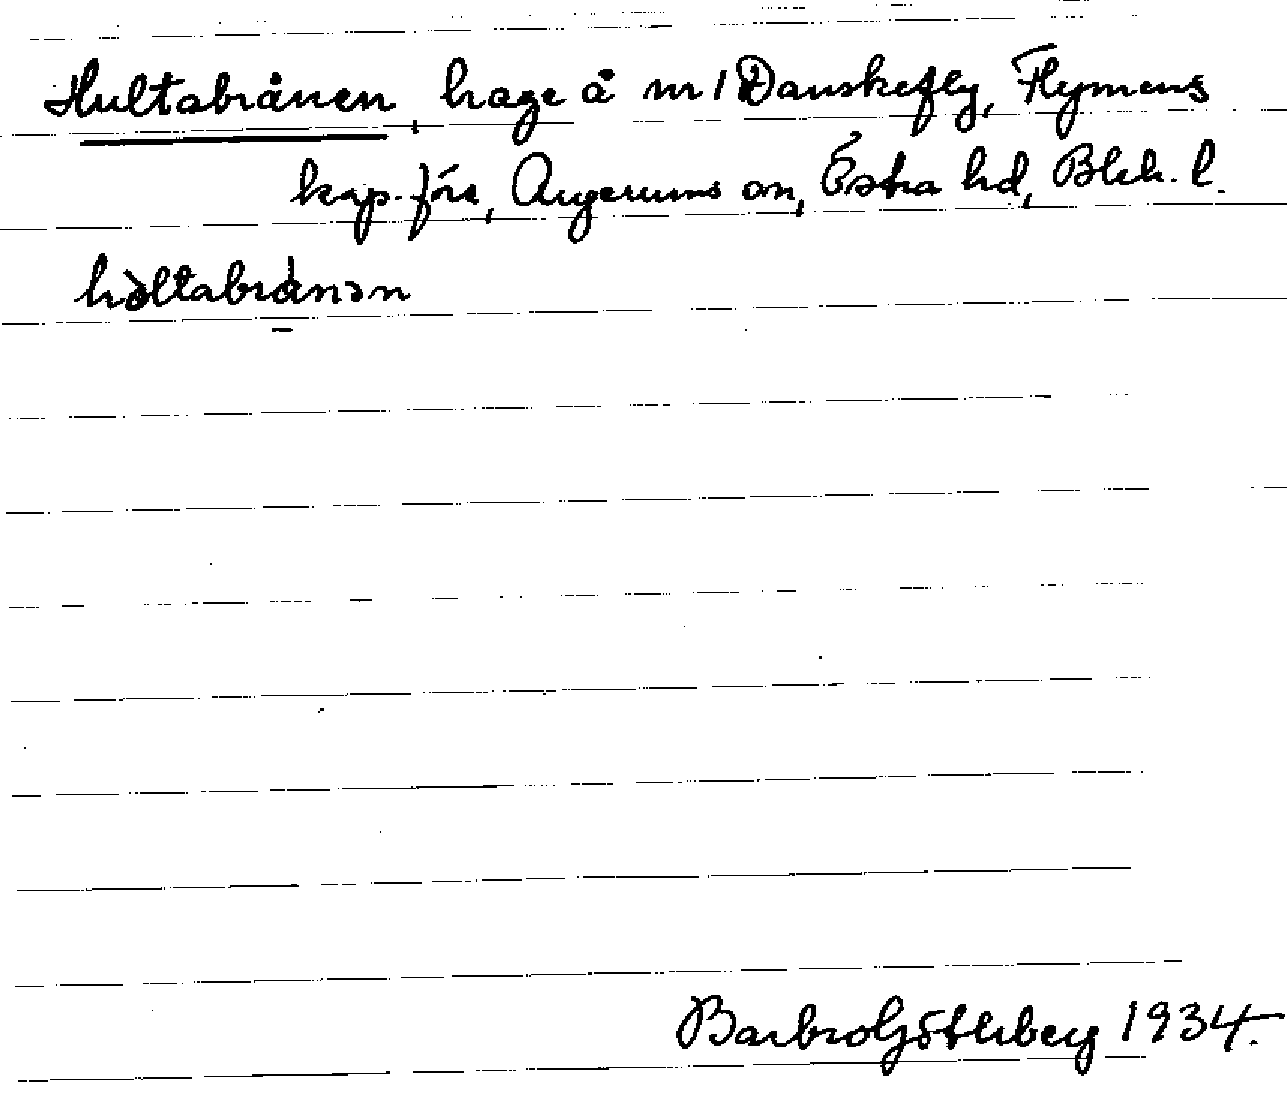 Hultabrånen, hage å nr 1 Danskefly, Flymens
kap.förs, Augerums sn, Östra hd, Blek. l.
hòltabrånən
Barbro Götherberg 1934.